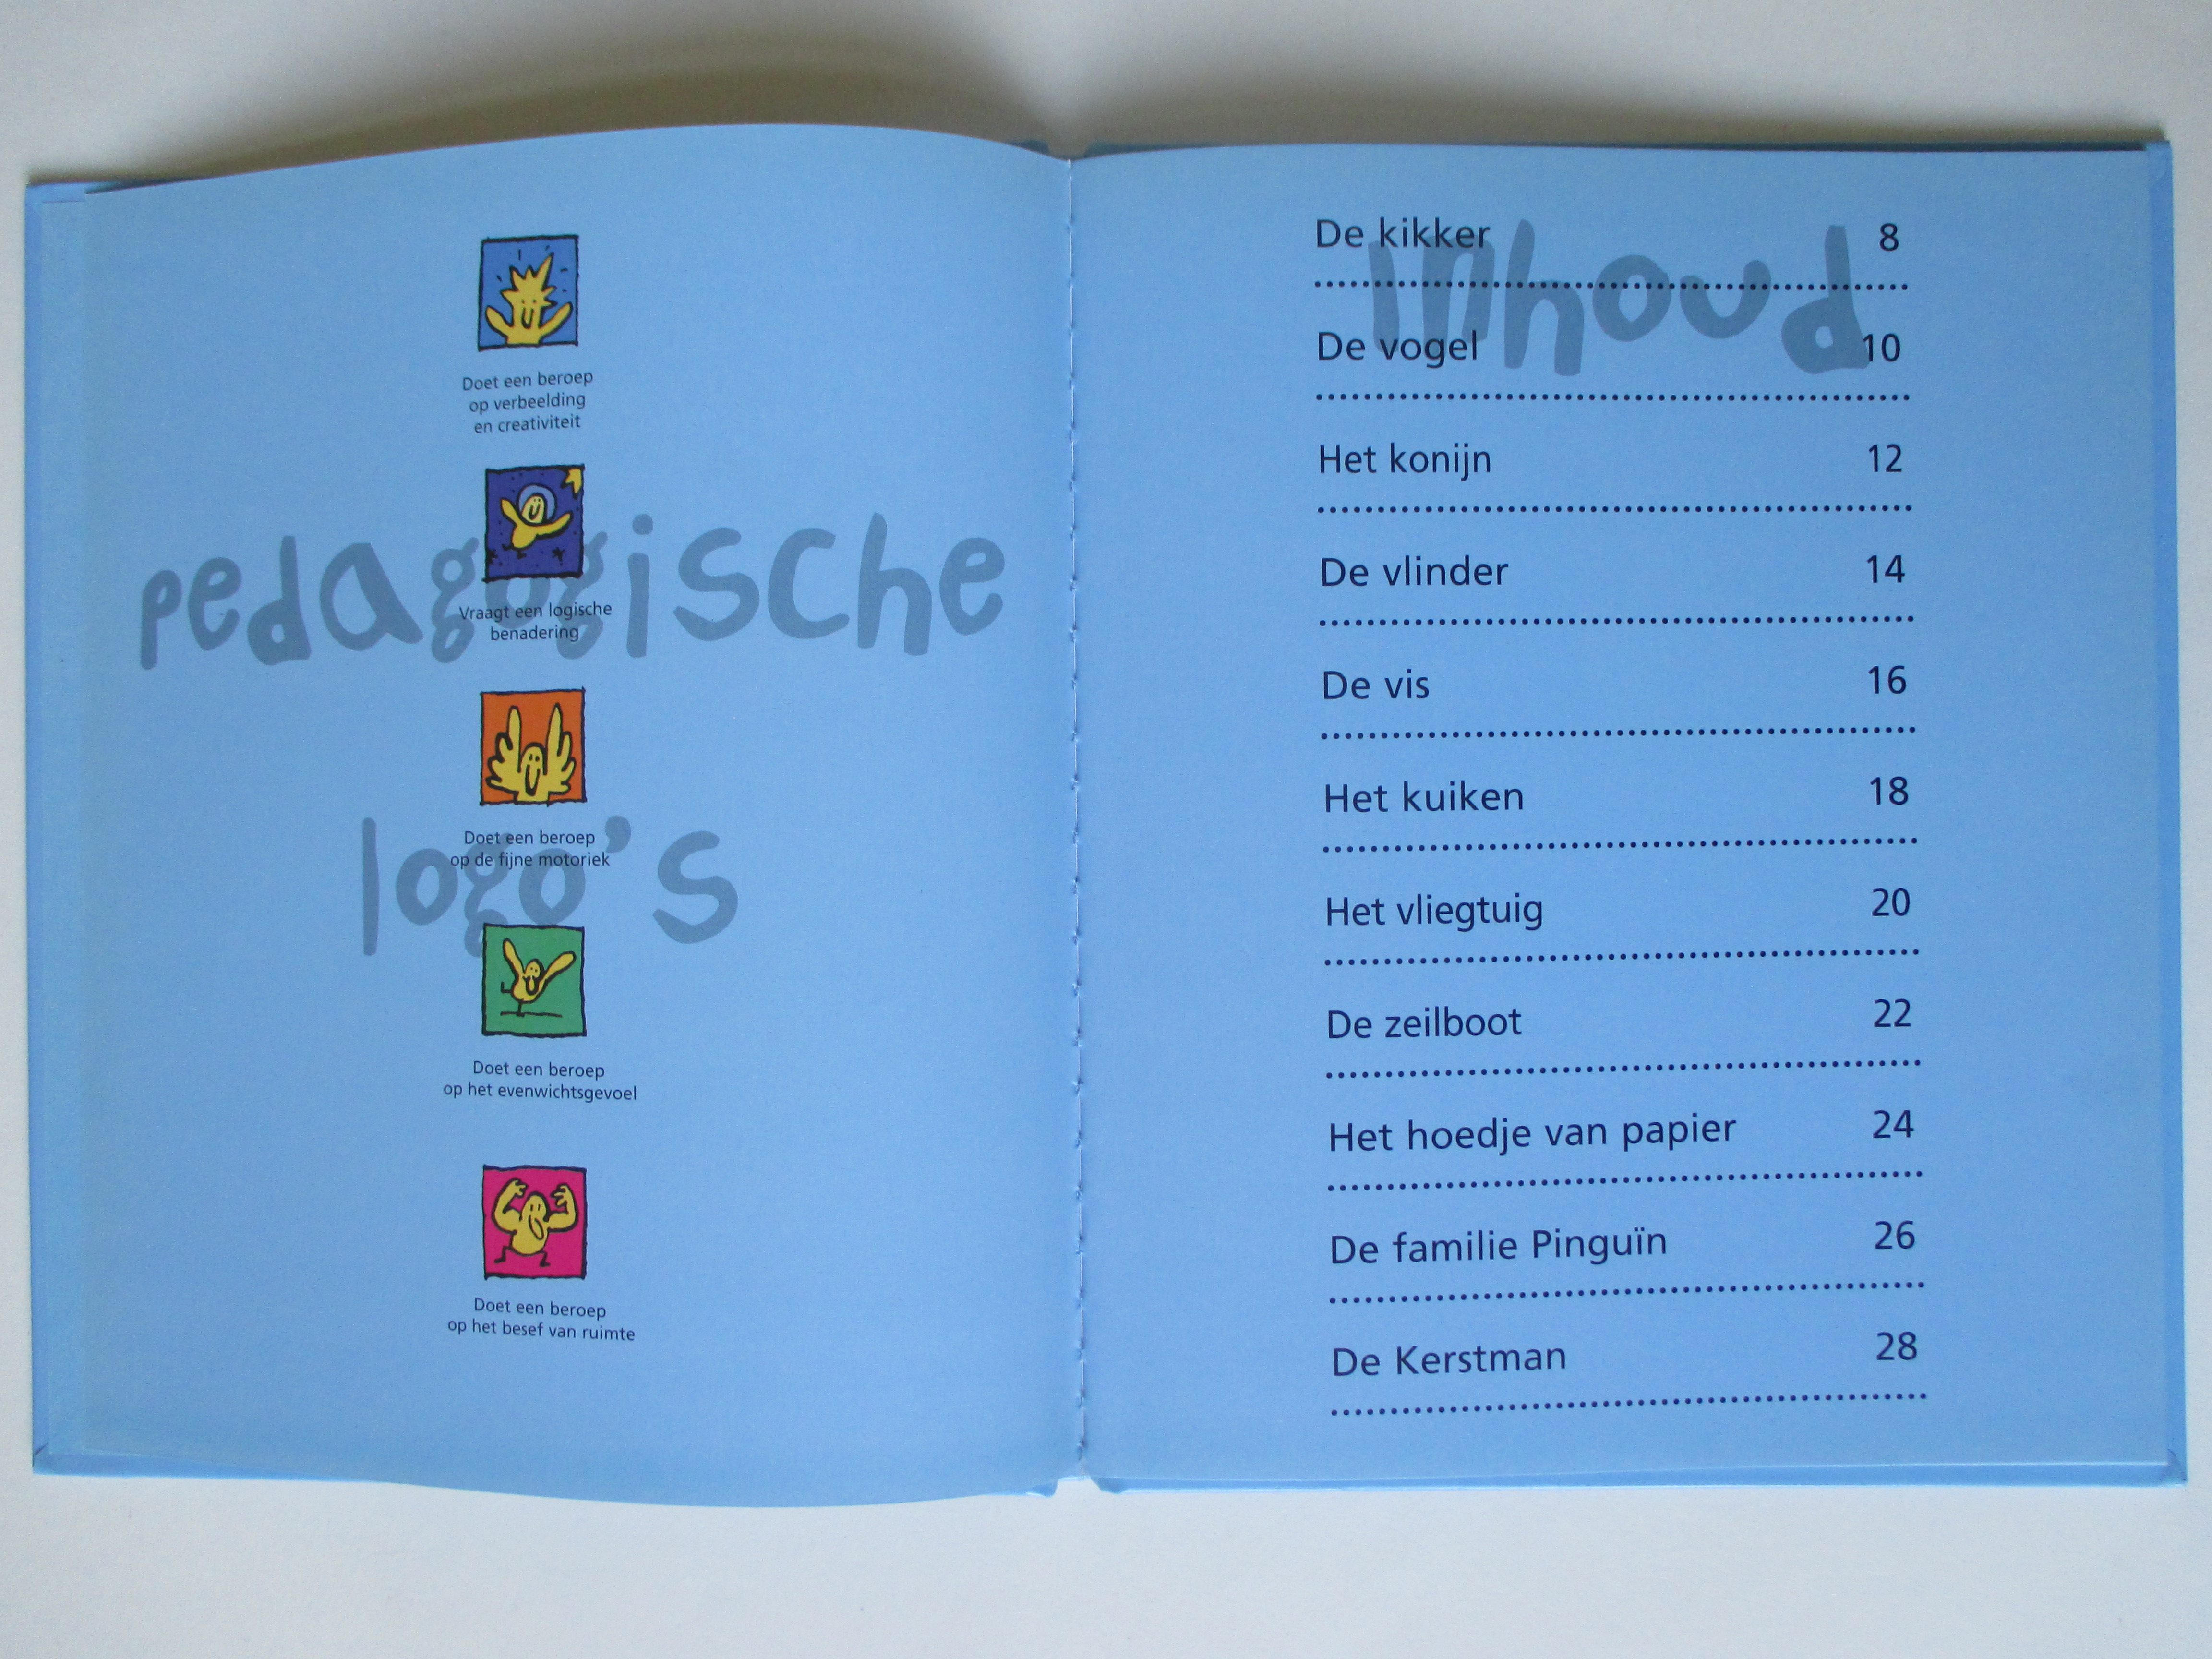 pedagogische
logo's
Doet een beroep
op verbeelding
en creativiteit
Vraagt een logische
benadering
Doet een beroep
op de fijne motoriek
Doet een beroep
op het evenwichtsgevoel
Doet een beroep
op het besef van ruimte
inhoud
De kikker 8
De vogel 10
Het konijn 12
De vlinder 14
De vis 16
Het kuiken 18
Het vliegtuig 20
De zeilboot 22
Het hoedje van papier 24
De familie Pinguïn 26
De Kerstman 28